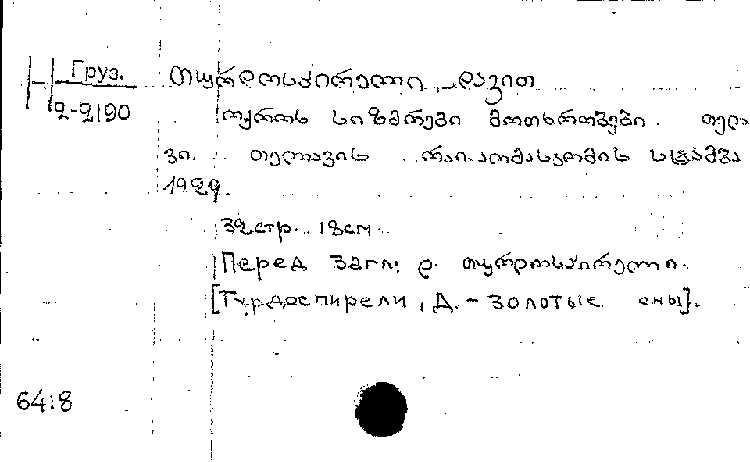 Груз.
2-2190
თურდოსპირელი, დავით
ოქროს სიზმრები მოთხრობები. თელა
ვი. თელავის რაიაღმასკომის სტამბა
1929.
32стр. 18см
Перед загл: დ. თურდოსპირელი.
[Турдоспирели, Д. - Золотые сны].
64:8